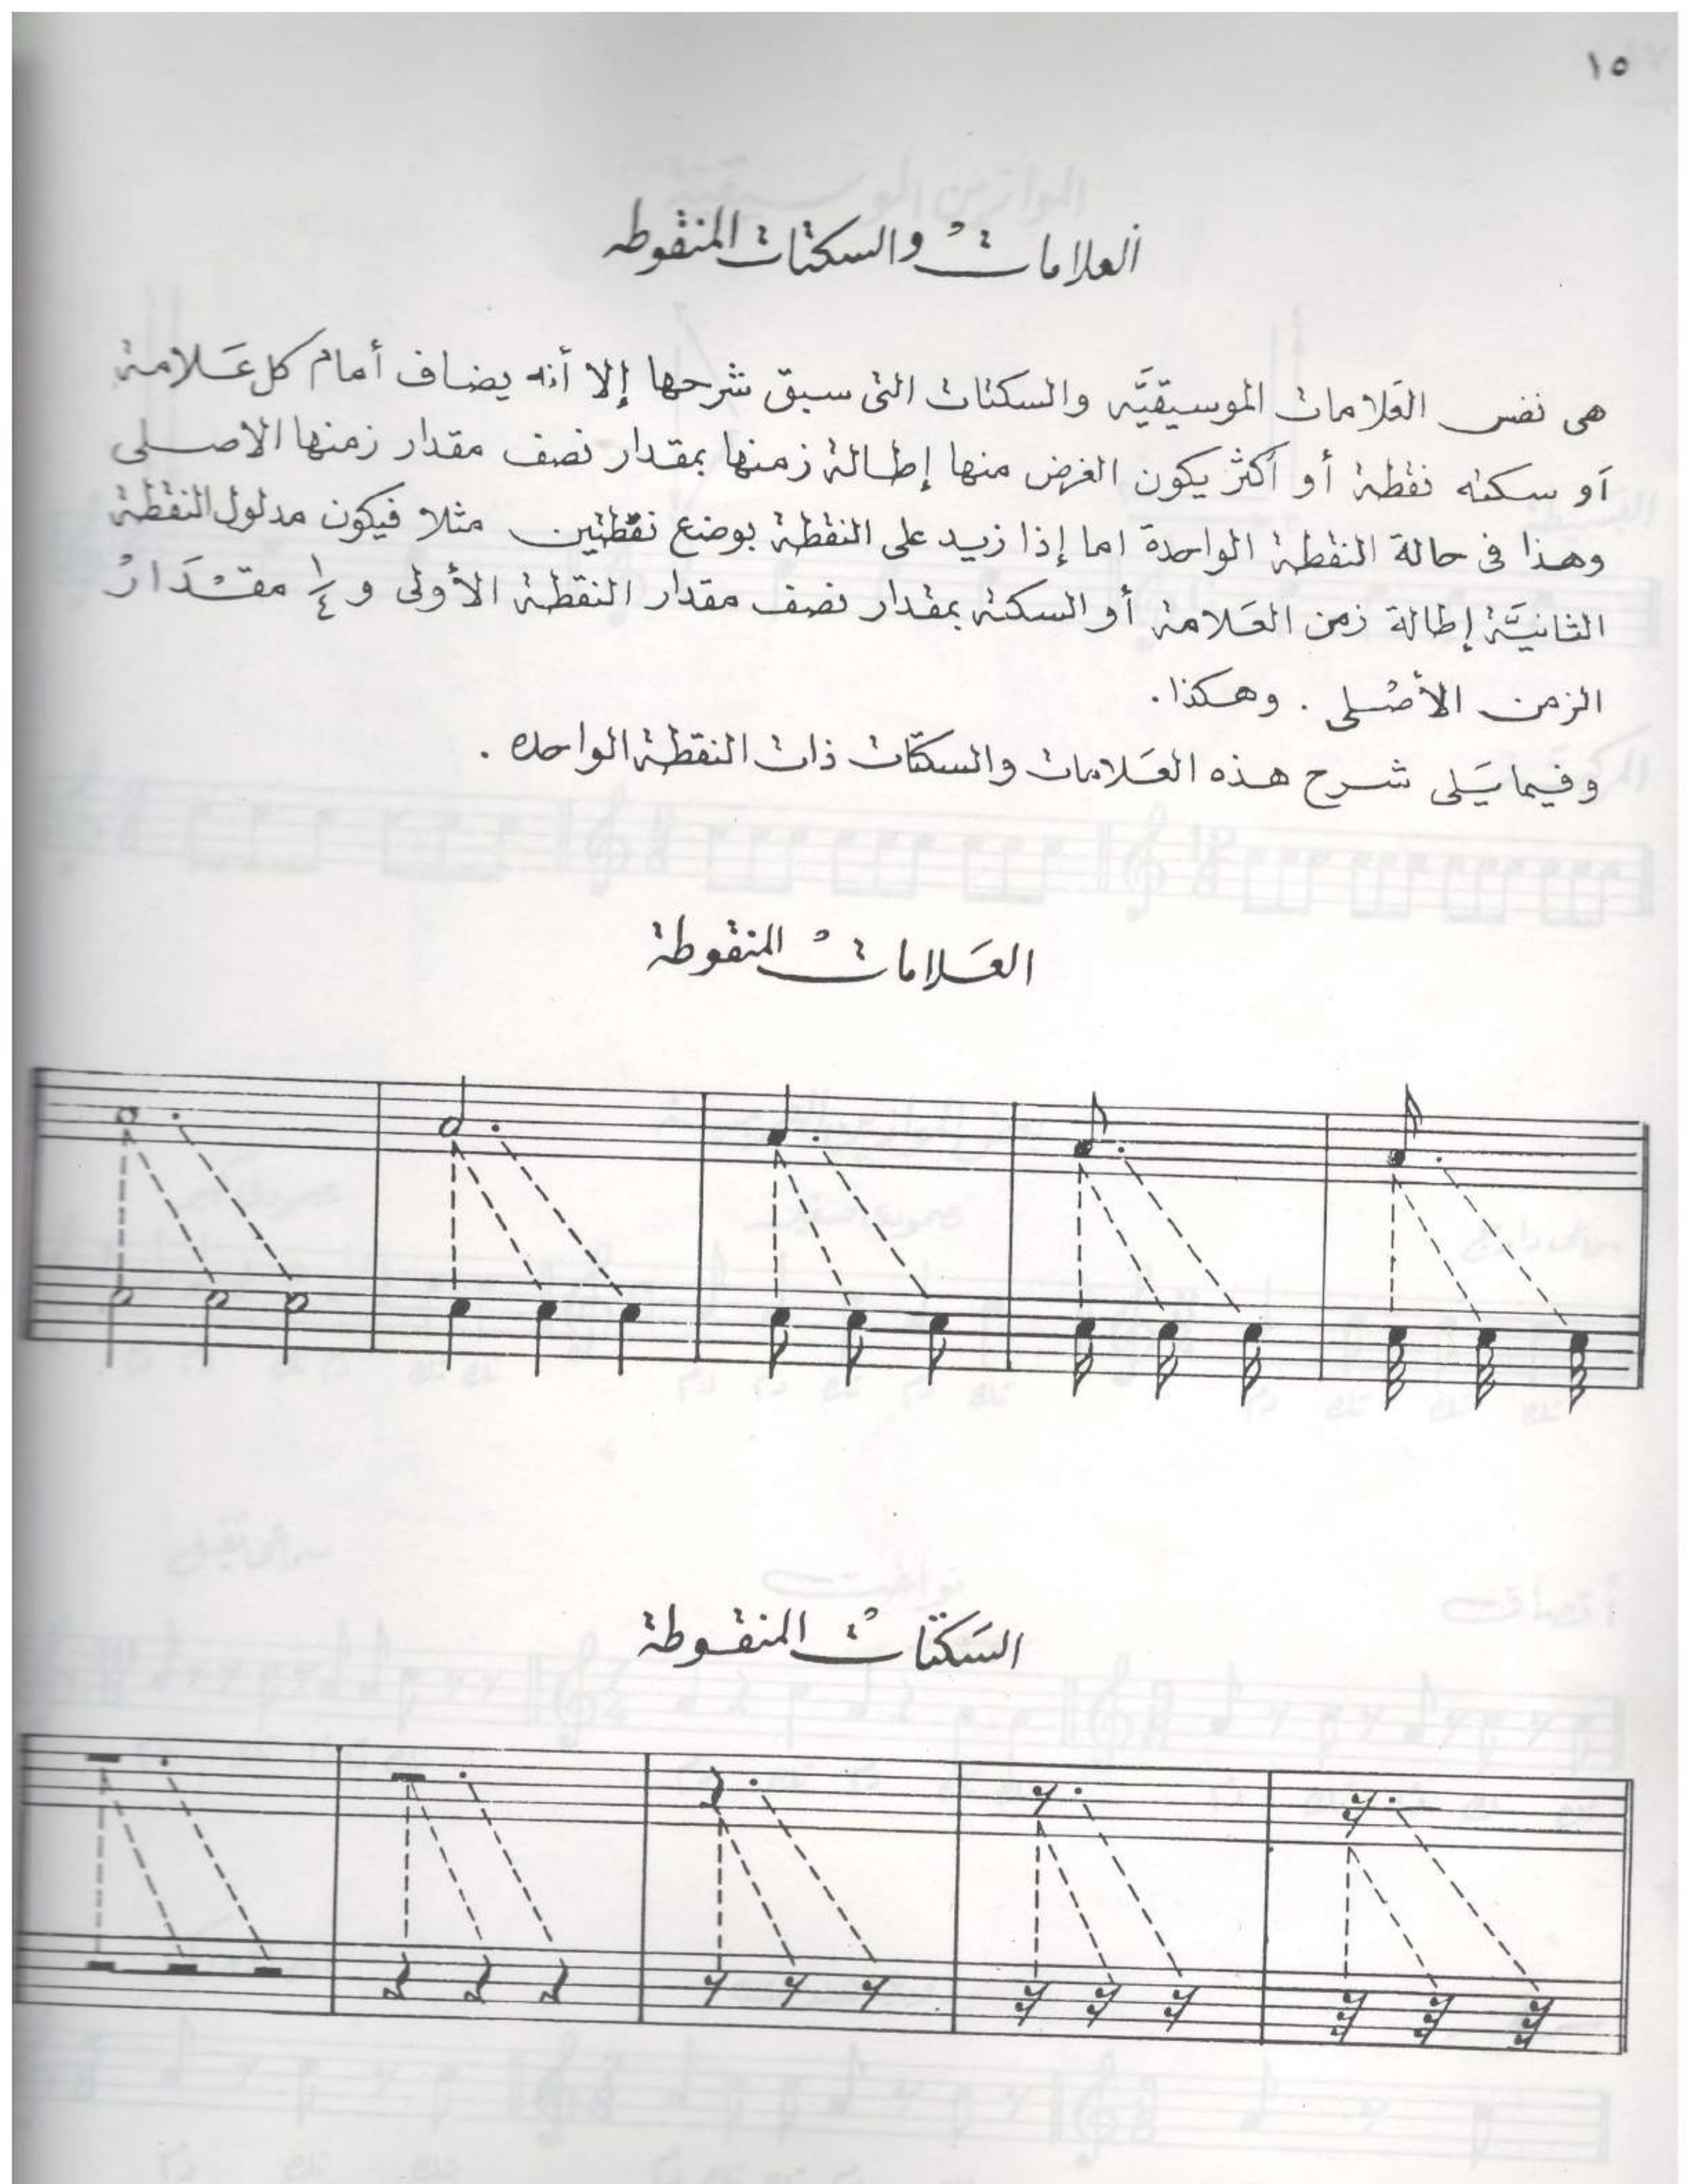 ١٥
العلامات والسكتات المنقوطه
هى نفس العَلامات الموسيقيَّه والسكتات التى سبق شرحها إلا أنه يضاف أمام كل عَلامة
أو سكته نقطة أو أكثر يكون الغرض منها إطالة زمنها بمقدار نصف مقدار زمنها الاصلى
وهذا فى حالة النقطة الواحدة اما إذا زيد على النقطة بوضع نقطتين مثلا فيكون مدلول النقطة
الثانيَّة إطالة زمن العَلامة أو السكتة بمقدار نصف مقدار النقطة الأولى و ١/٤ مقدَار
الزمن الأصلى . وهكذا .
وفيما يَلى شرح هذه العَلامات والسكتات ذات النقطة الواحده .
العَلامات المنقوطة
السَكتات المنقوطة